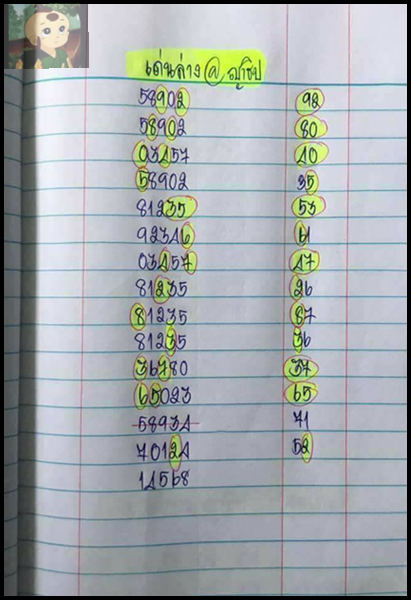 เด่นล่าง @
58902 92
58902 80
03457 40
58902 35
81235 53
92346 61
03457 47
81235 26
81235 87
81235 36
36780 37
65023 65
58934 71
70124 52
14568